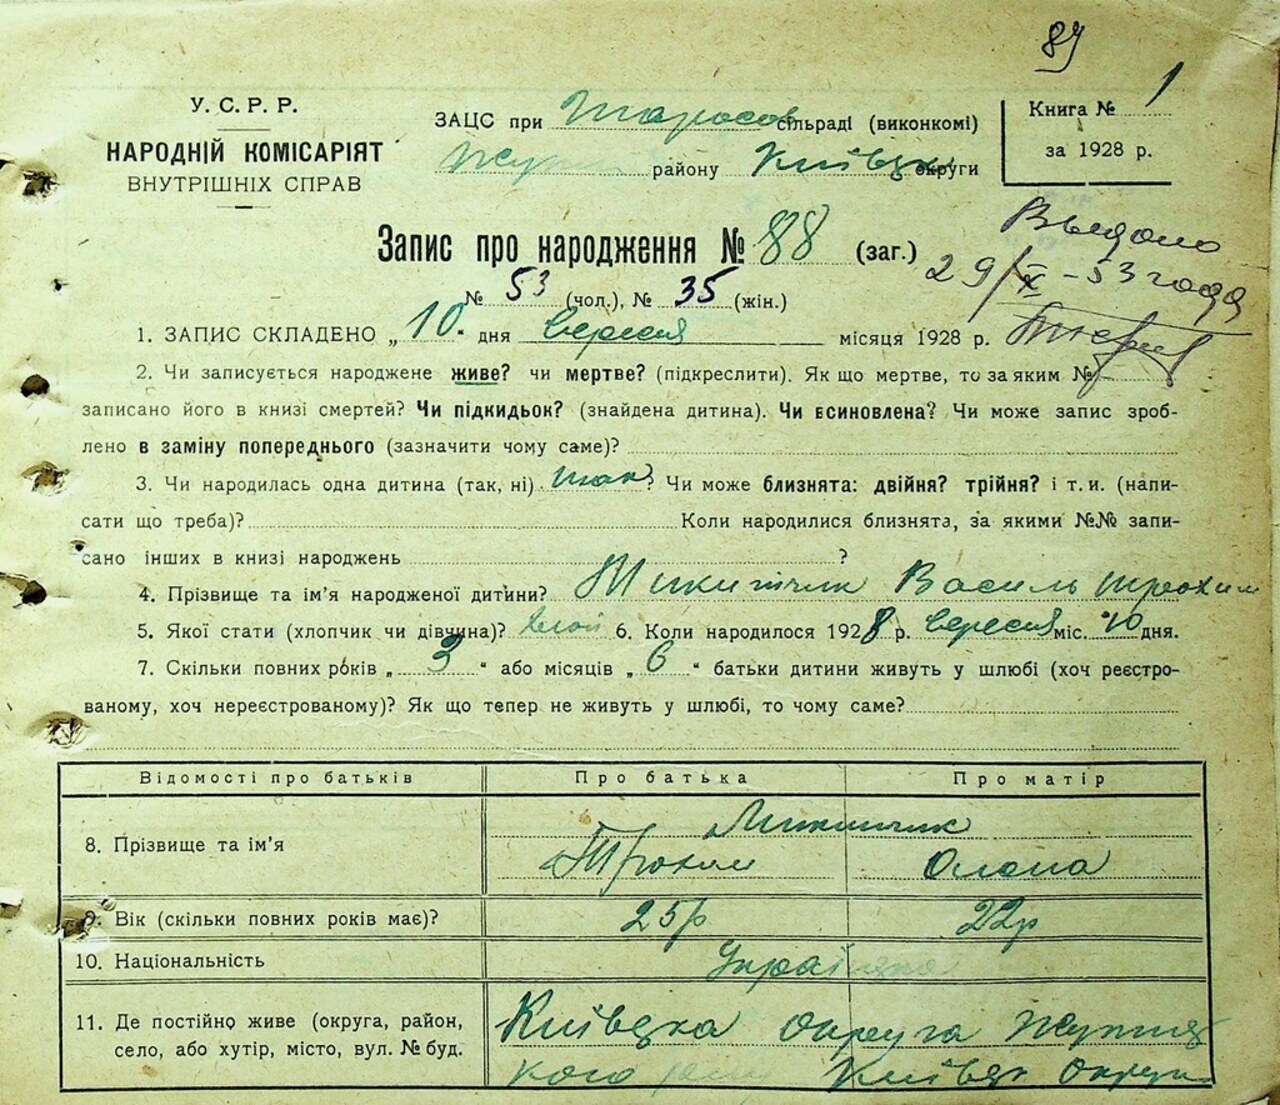 89
У. С. Р. Р.
НАРОДНІЙ КОМІСАРІЯТ
ВНУТРІШНІХ СПРАВ
ЗАЦС при Тарасов сільраді (виконкомі)
району Київськ округи
Книга № 1
за 1928 р.
Выдано
29/X - 53 года
Запис про народження № 88 (заг.)
№ 53 (чол.), № 35 (жін.)
1. ЗАПИС СКЛАДЕНО „10" дня вересня місяця 1928 р.
2. Чи записується народжене живе? чи мертве? (підкреслити). Як що мертве, то за яким №
записано його в книзі смертей? Чи підкидьок? (знайдена дитина). Чи всиновлена? Чи може запис зроб-
лено в заміну попереднього (зазначити чому саме)?
3. Чи народилась одна дитина (так, ні) так? Чи може близнята: двійня? трійня? і т. и. (напи-
сати що треба)? Коли народилися близнята, за якими №№ запи-
сано інших в книзі народжень ?
4. Прізвище та ім'я народженої дитини? Микитчик Василь Трохим
5. Якої стати (хлопчик чи дівчина)? 6. Коли народилося 1928 р. вересня міс. "10 дня.
7. Скільки повних років „ 3 " або місяців „ 6 " батьки дитини живуть у шлюбі (хоч реєстро-
ваному, хоч нереєстрованому)? Як що тепер не живуть у шлюбі, то чому саме?
Відомості про батьків Про батька Про матір
Микитчик
8. Прізвище та ім'я Трохим Олена
9. Вік (скільки повних років має)? 25р 22р
10. Національність
11. Де постійно живе (округа, район, Київська округа
село, або хутір, місто, вул. № буд. кого Київськ Округи